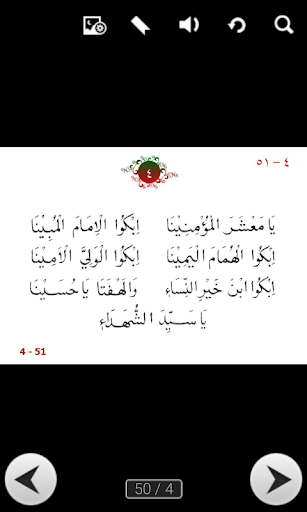 ٤ – ٥١
٤
يَا مَعْشَرَ الْمُؤْمِنِيْنَا اِبْكُوا الْاِمَامَ الْمُبِيْنَا
اِبْكُوا الْهُمَامَ الْيَمِيْنَا اِبْكُوا الْوَلِيَّ الْاَمِيْنَا
اِبْكُوا ابْنَ خَيْرِ النِّسَاءِ وَالَهْفَتَا يَا حُسَيْنَا
يَا سَيِّدَ الشُّهَدَاءِ
4 - 51
50 / 4